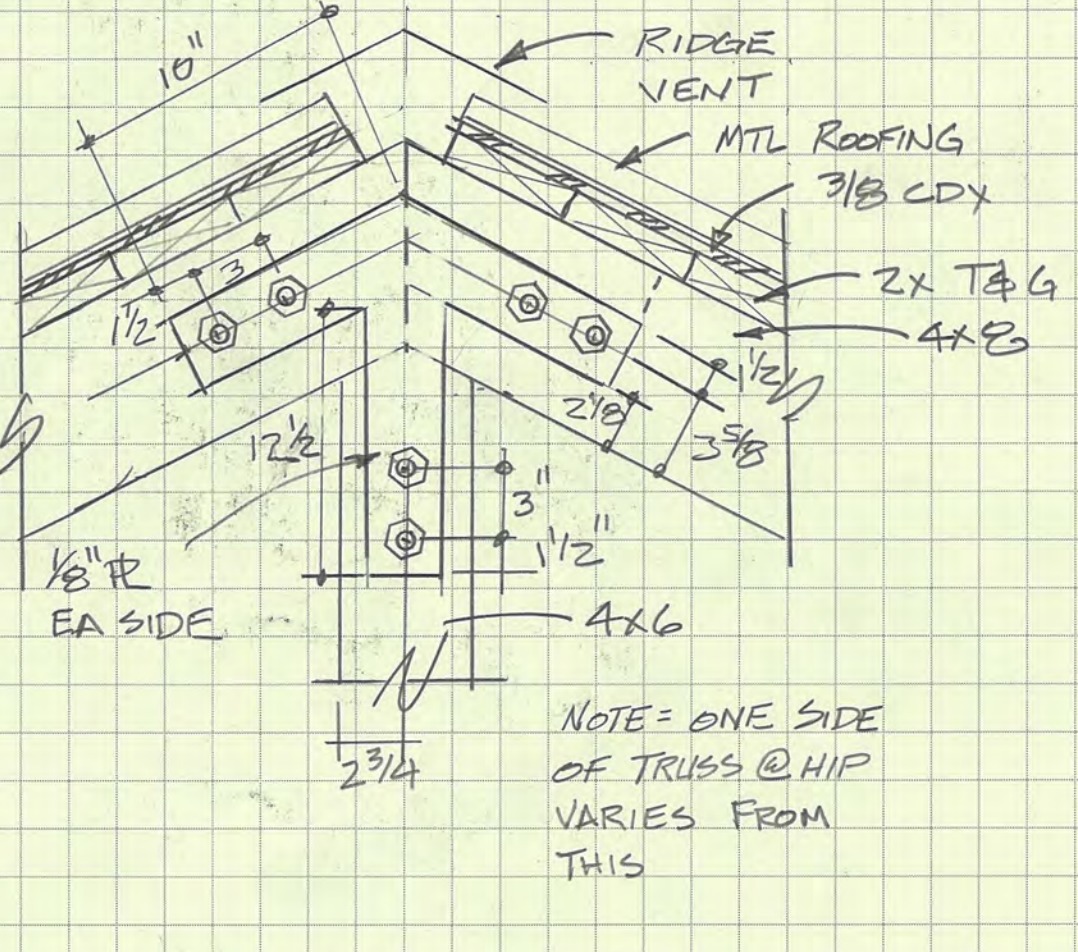 10"
RIDGE
VENT
MTL ROOFING
3/8 CDX
2X T&G
4X8
3
1 1/2
1 1/2
2 1/8
3 5/8
12 1/2
3"
1 1/2"
1/8" PL
EA SIDE
4X6
2 3/4
NOTE = ONE SIDE
OF TRUSS @ HIP
VARIES FROM
THIS